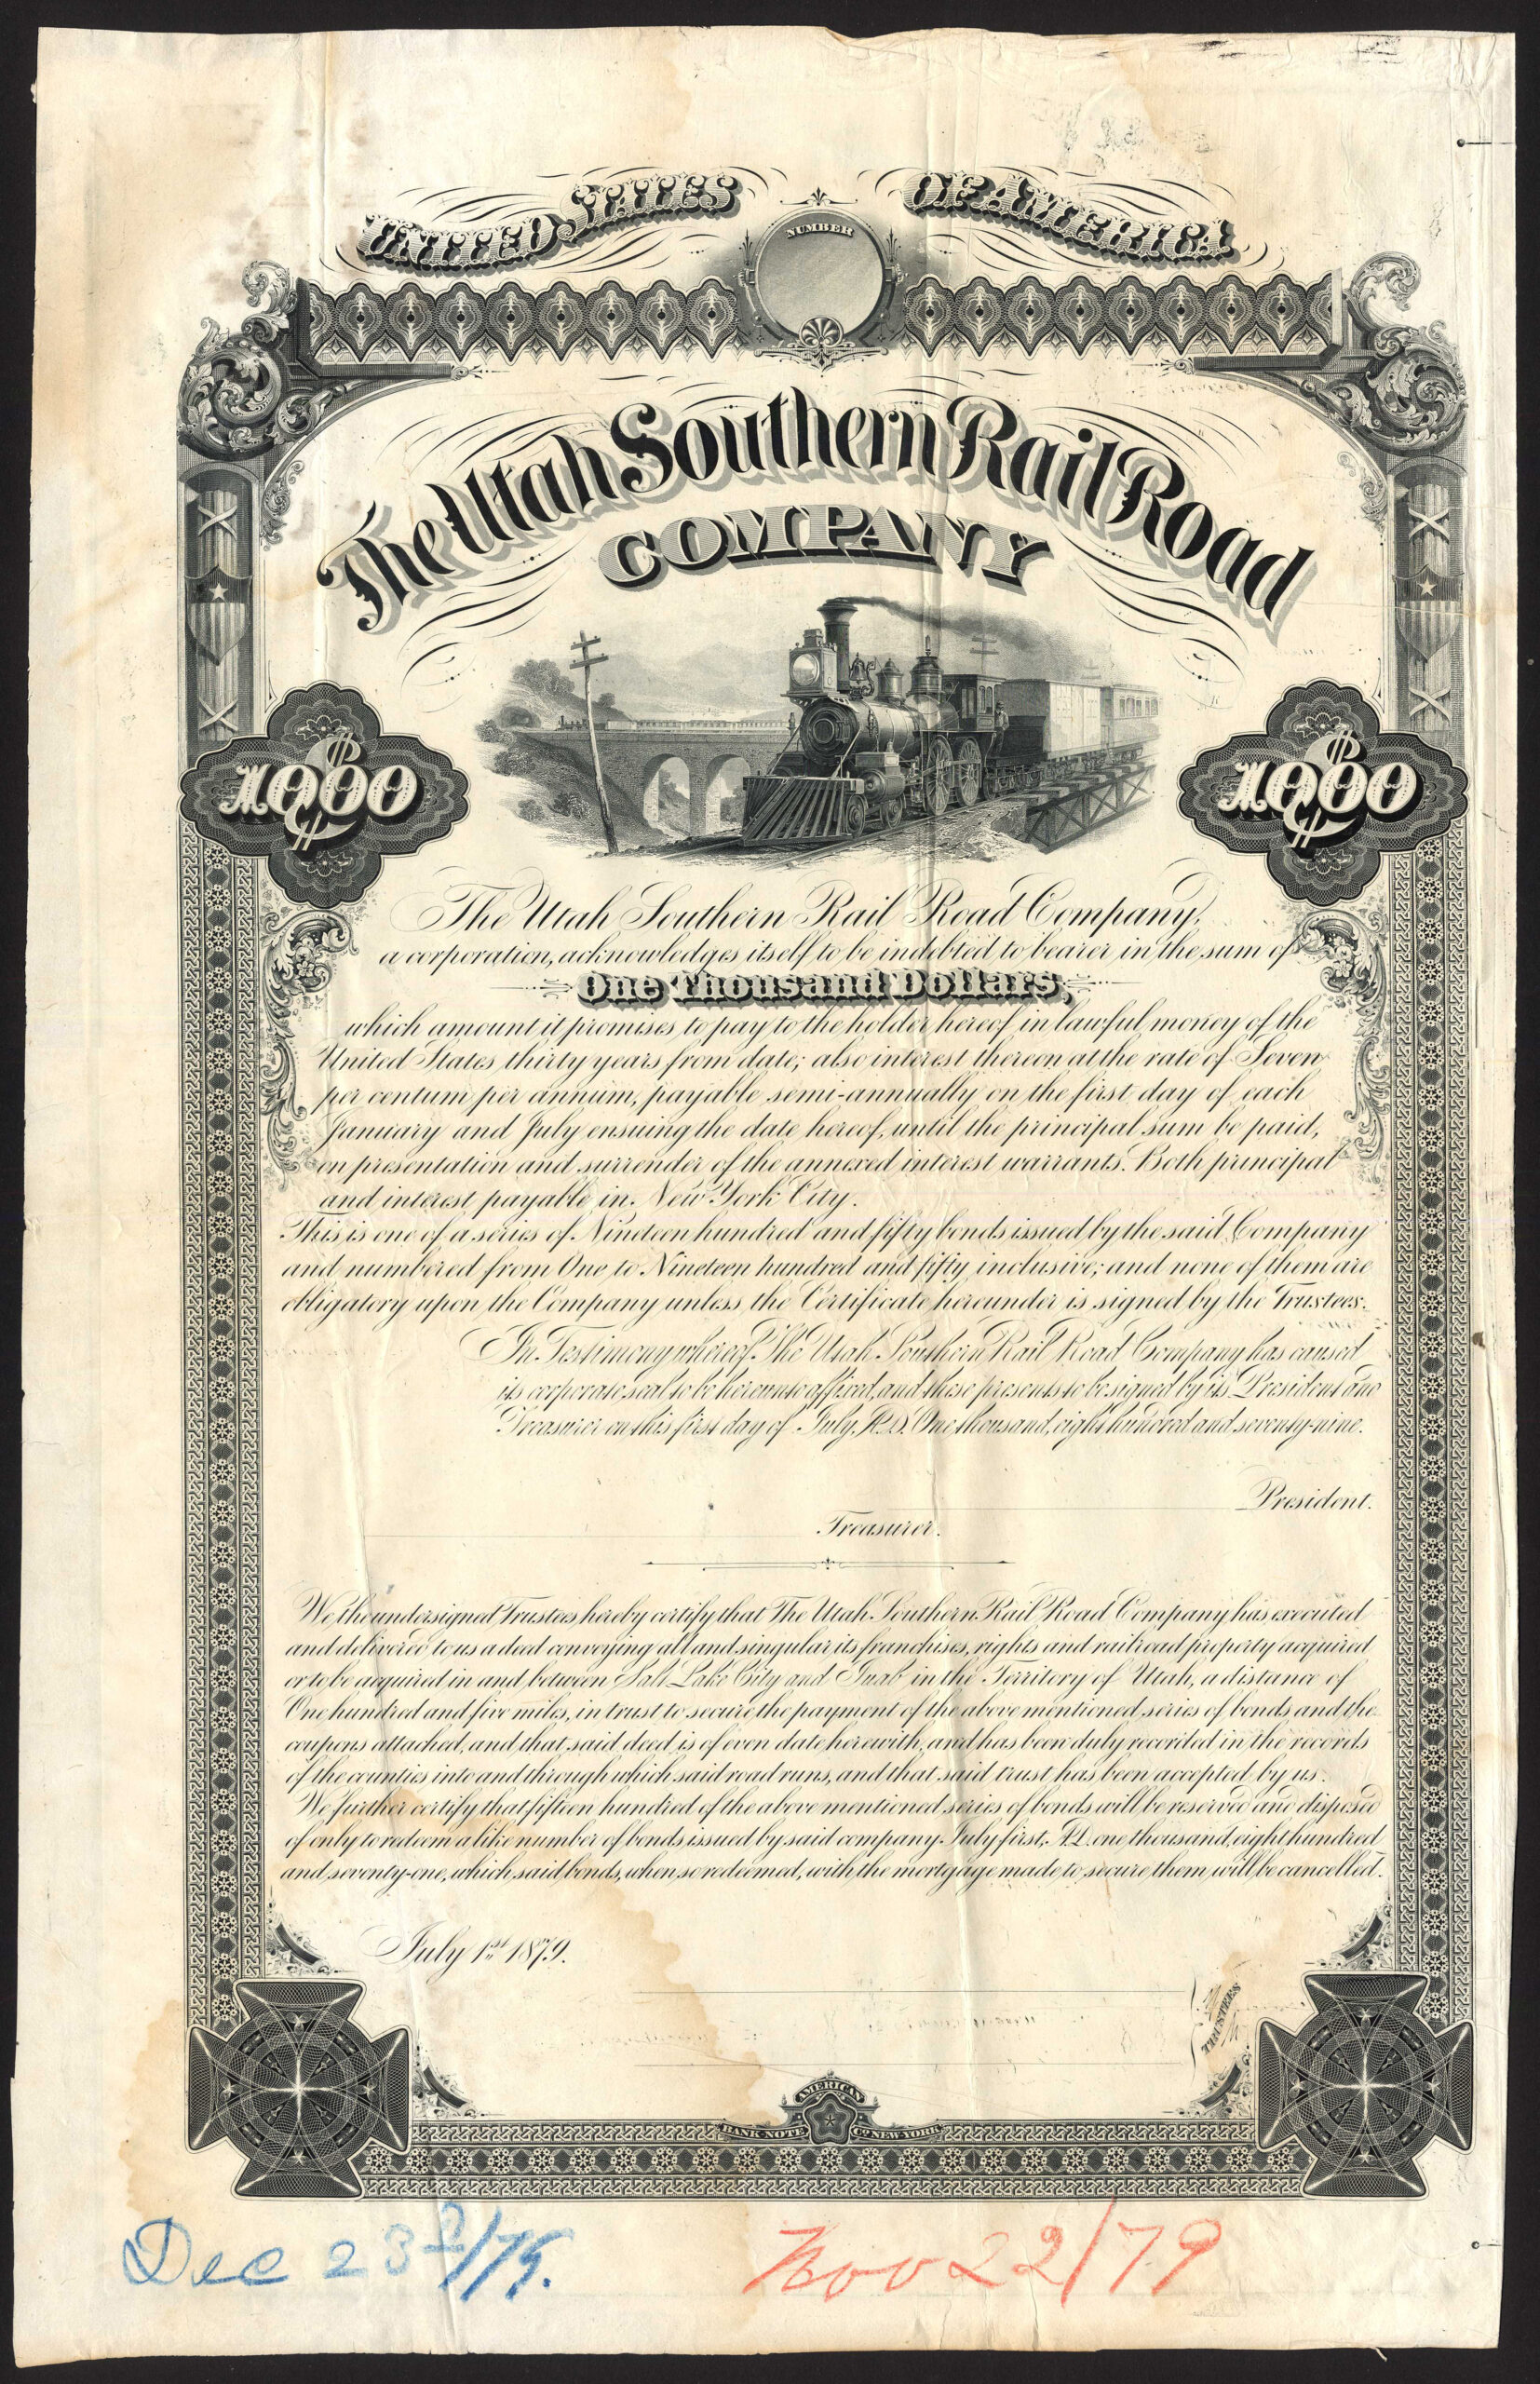 UNITED STATES OF AMERICA
NUMBER
The Utah Southern Rail Road
COMPANY
$1000 $1000
The Utah Southern Rail Road Company,
a corporation, acknowledges itself to be indebted to bearer in the sum of
One Thousand Dollars,
which amount it promises to pay to the holder hereof in lawful money of the
United States thirty years from date; also interest thereon at the rate of Seven
per centum per annum, payable semi-annually on the first day of each
January and July ensuing the date hereof, until the principal sum be paid,
on presentation and surrender of the annexed interest warrants. Both principal
and interest payable in New York City.
This is one of a series of Nineteen hundred and fifty bonds issued by the said Company
and numbered from One to Nineteen hundred and fifty inclusive; and none of them are
obligatory upon the Company unless the Certificate hereunder is signed by the Trustees.
In Testimony whereof, The Utah Southern Rail Road Company has caused
its corporate seal to be hereunto affixed, and these presents to be signed by its President and
Treasurer on this first day of July, A.D. One thousand, eight hundred and seventy-nine.
President.
Treasurer.
We, the undersigned Trustees hereby certify that The Utah Southern Rail Road Company has executed
and delivered to us a deed conveying all and singular its franchises, rights and railroad property acquired
or to be acquired in and between Salt Lake City and Juab in the Territory of Utah, a distance of
One hundred and five miles, in trust to secure the payment of the above mentioned series of bonds and the
coupons attached, and that said deed is of even date herewith, and has been duly recorded in the records
of the counties into and through which said road runs, and that said trust has been accepted by us.
We further certify that fifteen hundred of the above mentioned series of bonds will be reserved and disposed
of only to redeem a like number of bonds issued by said company July first, A.D. one thousand, eight hundred
and seventy-one, which said bonds, when so redeemed, with the mortgage made to secure them will be cancelled.
July 1st 1879.
TRUSTEES
AMERICAN
BANK NOTE CO. NEW-YORK
Dec 23d/79. Nov 22/79